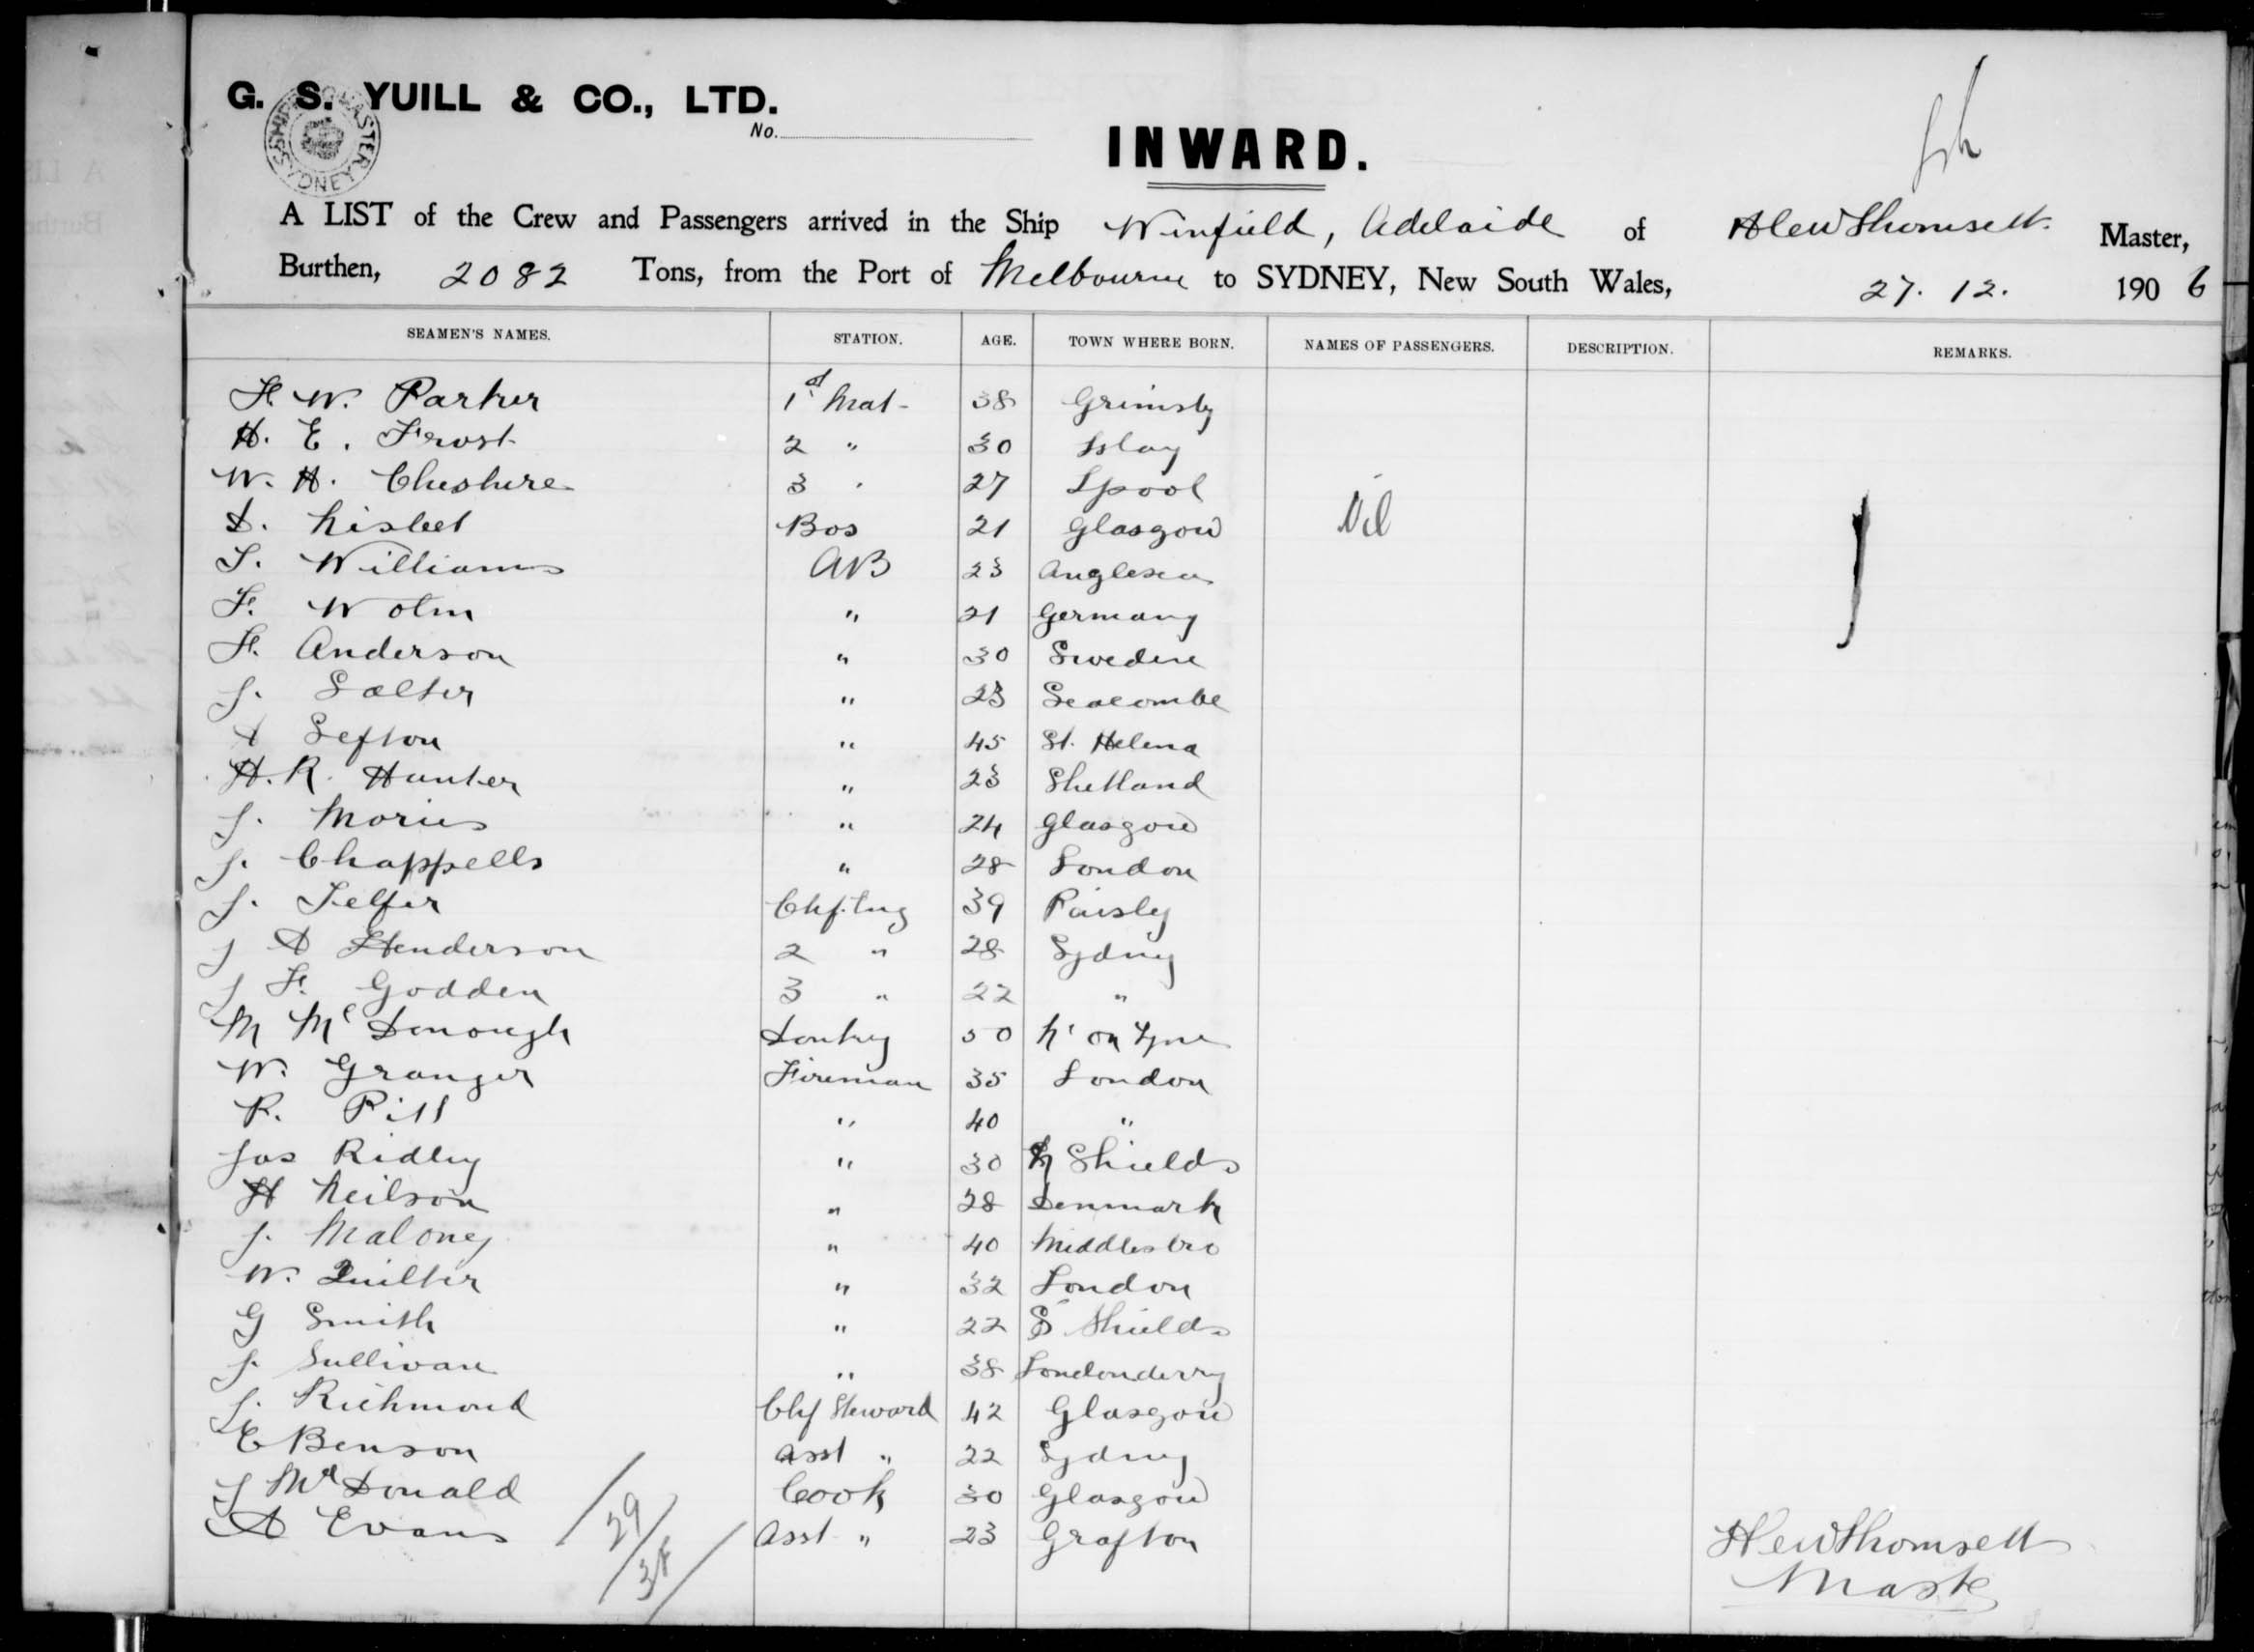 G. S. YUILL & CO., LTD.
SHIPPING MASTER SYDNEY
No.
INWARD.
A LIST of the Crew and Passengers arrived in the Ship Winfield, Adelaide of Hew Thomsett Master,
Burthen, 2082 Tons, from the Port of Melbourne to SYDNEY, New South Wales, 27. 12. 1906
SEAMEN'S NAMES. STATION. AGE. TOWN WHERE BORN. NAMES OF PASSENGERS. DESCRIPTION. REMARKS.
F. W. Parker 1st Mat 38 Grimsby
H. E. Frost 2 " 30 Islay
W. H. Cheshire 3 " 27 Lpool
D. Nisbet Bos 21 Glasgow Nil
T. Williams AB 23 Anglesea
F. Wolm " 21 Germany
F. Anderson " 30 Sweden
J. Salter " 23 Seacombe
A Sefton " 45 St. Helena
H. R. Hunter " 23 Shetland
J. Morris " 24 Glasgow
J. Chappells " 28 London
J. Telfer Chf. Eng 39 Paisly
J A Henderson 2 " 28 Sydney
J F. Godden 3 " 22 "
M McDonough Donkey 50 N' on Tyne
W. Granger Fireman 35 London
R. Pitt " 40 "
Jas Ridley " 30 N Shields
H Neilson " 28 Denmark
J. Maloney " 40 Middlesbro
W. Quilter " 32 London
G Smith " 22 S Shields
J. Sullivan " 38 Londonderry
J. Richmond Chf Steward 42 Glasgow
E Benson Asst " 22 Sydney
J McDonald Cook 30 Glasgow
A Evans Asst " 23 Grafton
29
Hew Thomsett
Mast